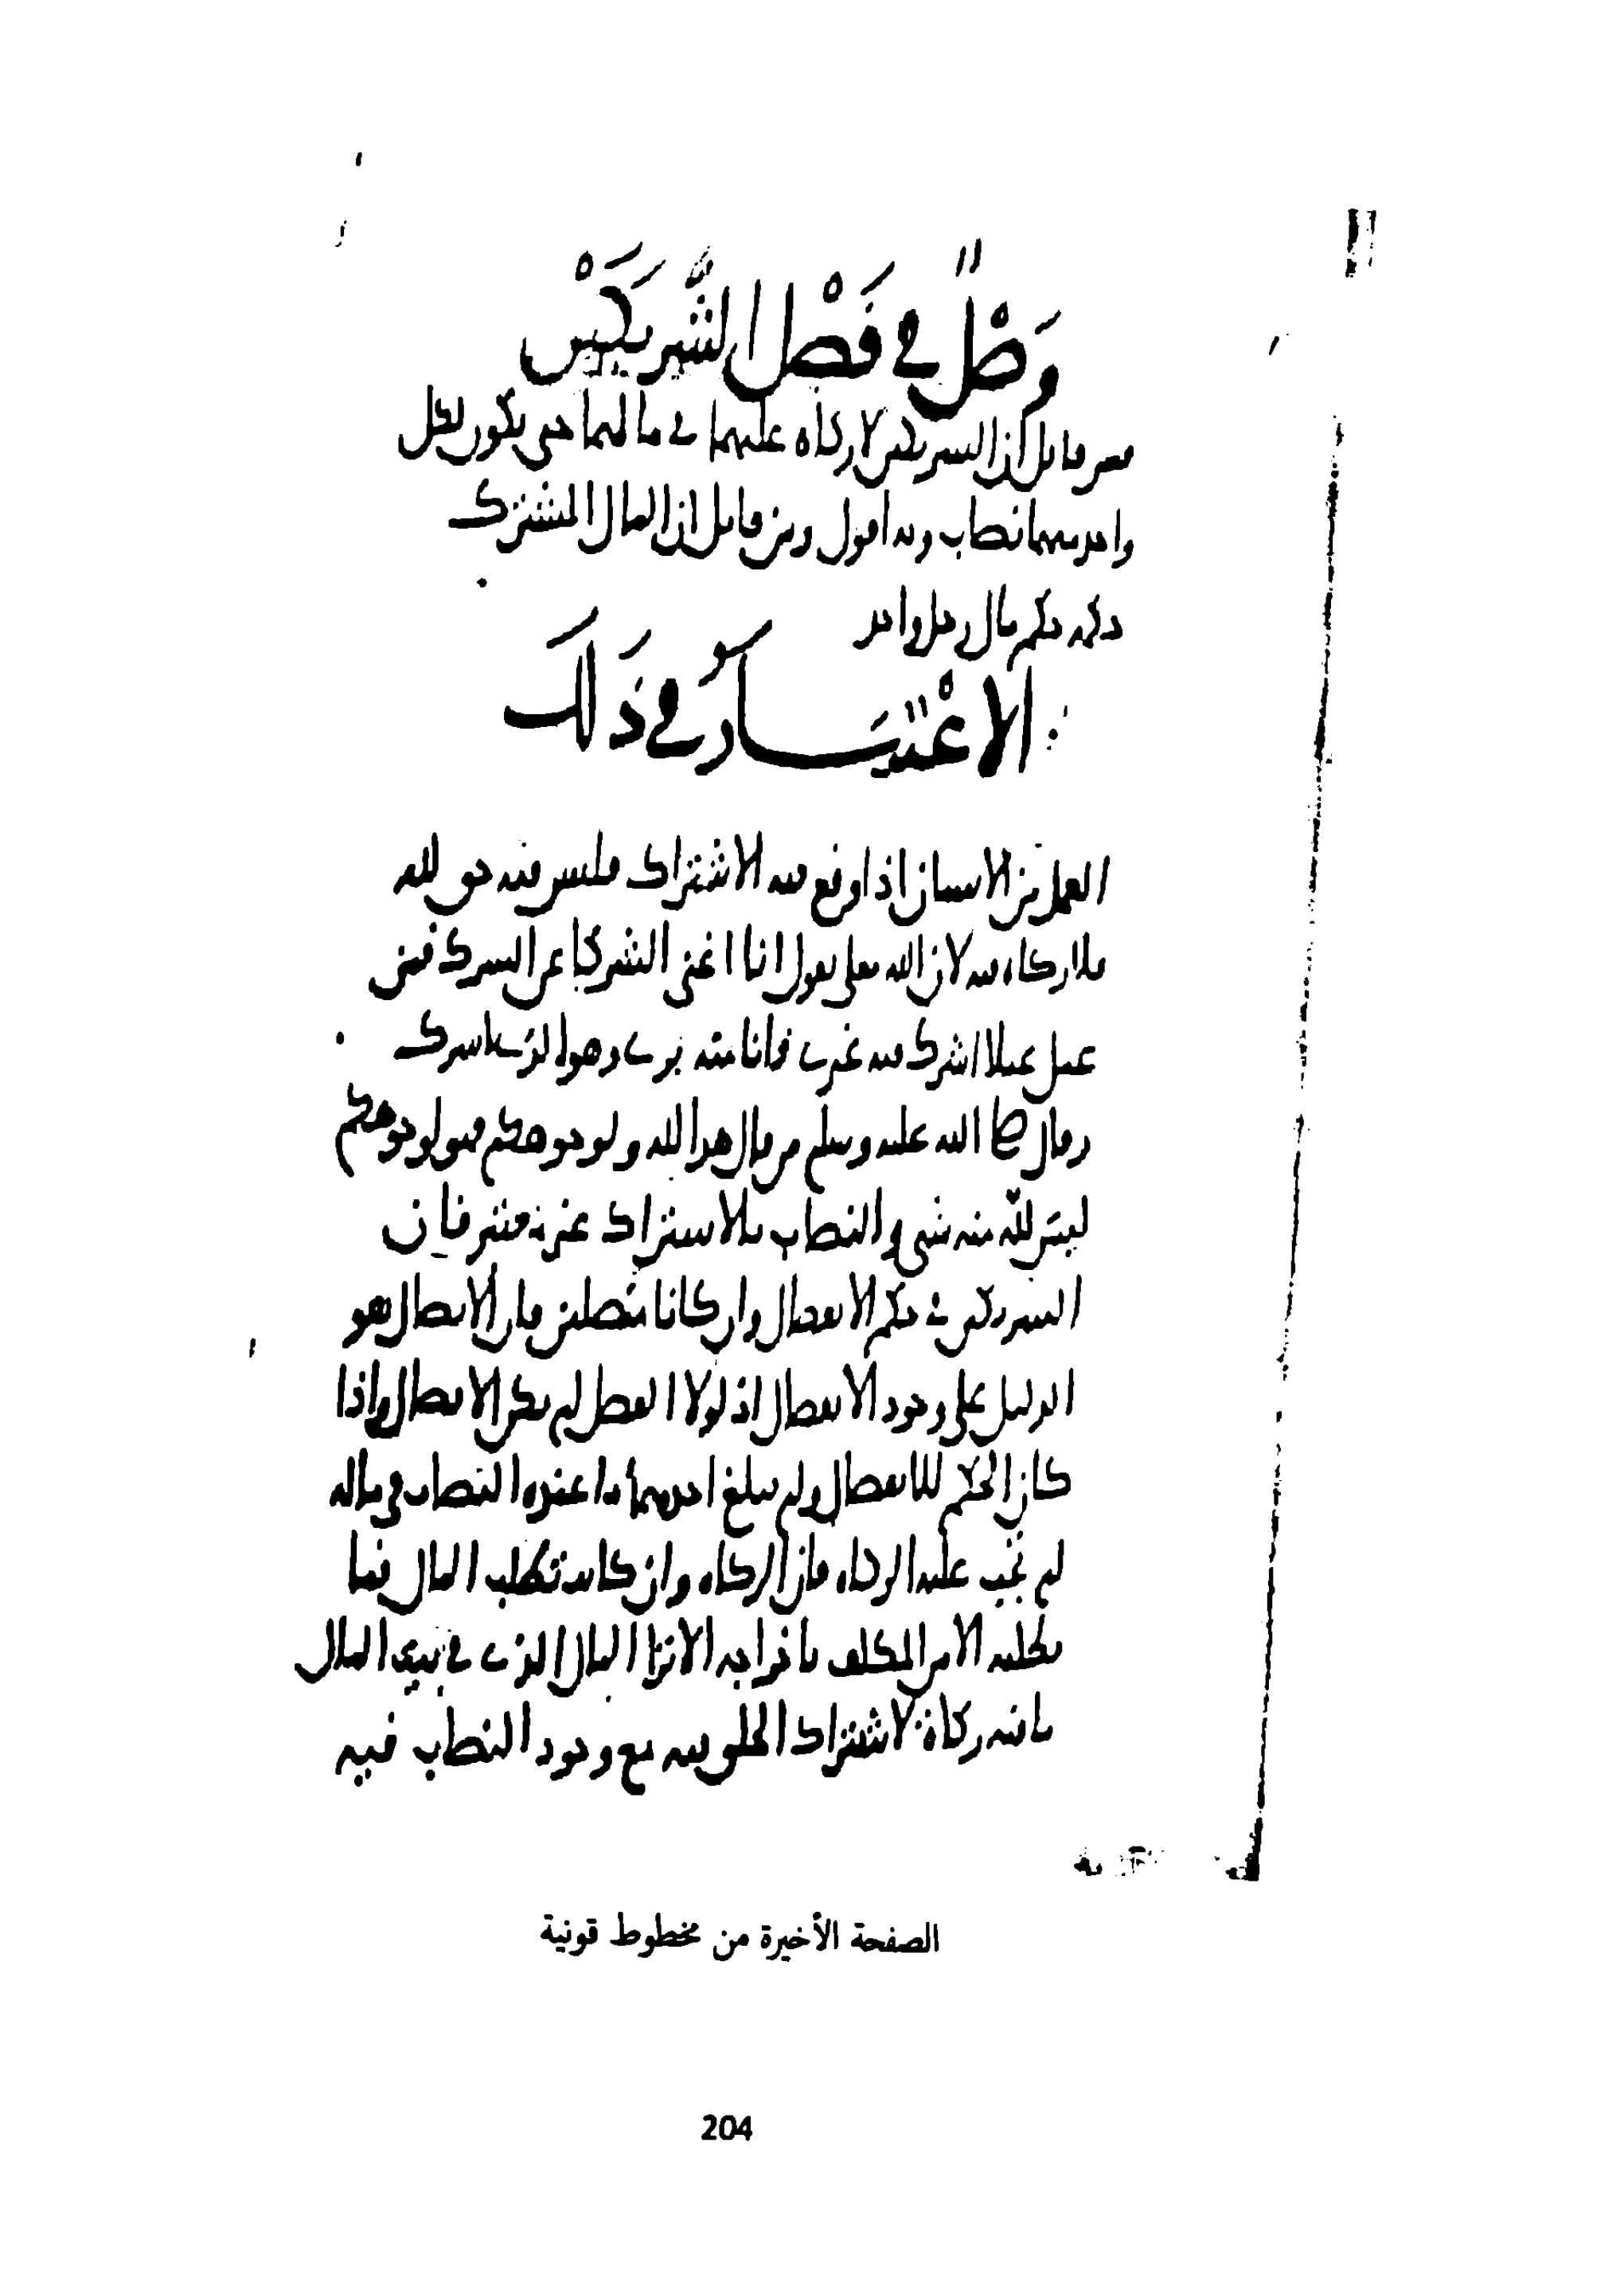 وَصْلٌ في فَصْل الشَّرِيكَيْن
فمن قائل أن الشريكين لا زكاة عليهما في مالهما حتى يكون لكل
واحد منهما نصاب وبه أقول ومن قائل ان المال المشترك
حكمه حكم مال رجل واحد
الاعْتِبَارُ في ذَلَكَ
العمل من الانسان اذا وقع فيه الاشتراك فليس فيه حق لله
فلا زكاه فيه لان الله تعلى يقول انا اغنى الشركا عن الشرك فمن
عمل عملا اشرك فيه غيرى فانا منه برى وهو للذى اشرك
وقال صلى الله عليه وسلم من قال هذا لله ولوجوهكم فهو لوجوهكم
ليس لله منه شى والنصاب بالاشتراك غير معتبر فان
الشريكين في حكم الانفصال وان كانا متصلين فان الاتصال هو
الدليل على وجود الانفصال اذ لولا الفصل لم يكن الاتصال واذا
كان الحكم للانفصال ولم يبلغ احدهما بما عنده النصاب في ماله
لم تجب عليه الزكاه فان الزكاه وان كانت تطلب المال فما
تطلبه الامن المكلف باخراجه الا ترا المال الذى في بيت المال
ما فيه زكاة لاشتراك الخلق فيه مع وجود النصاب فيه
الصفحة الأخيرة من مخطوط قونية
204